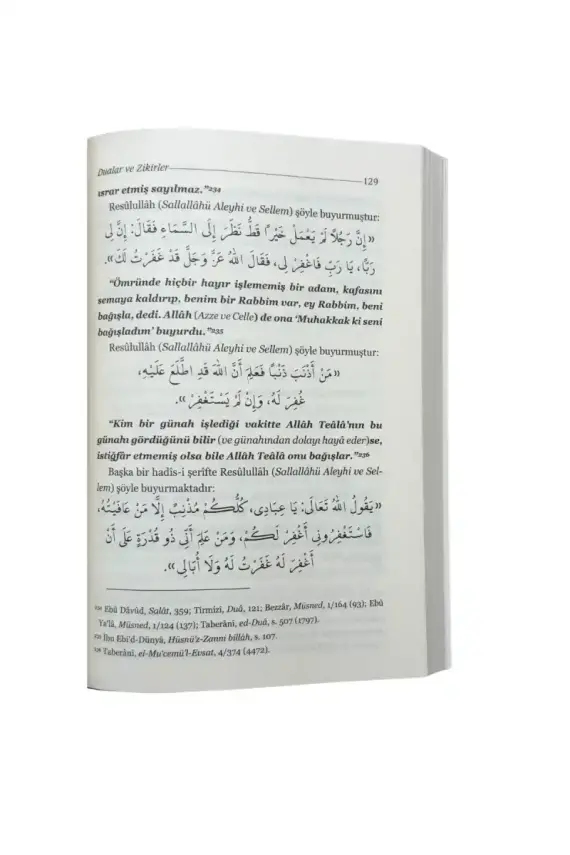 Dualar ve Zikirler
129
ısrar etmiş sayılmaz."234
Resûlullâh (Sallallâhü Aleyhi ve Sellem) şöyle buyurmuştur:
«إِنَّ رَجُلًا لَمْ يَعْمَلْ خَيْرًا قَطُّ نَظَرَ إِلَى السَّمَاءِ فَقَالَ: إِنَّ لِي
رَبًّا، يَا رَبِّ فَاغْفِرْ لِي، فَقَالَ اللهُ عَزَّ وَجَلَّ قَدْ غَفَرْتُ لَكَ».
"Ömründe hiçbir hayır işlememiş bir adam, kafasını
semaya kaldırıp, benim bir Rabbim var, ey Rabbim, beni
bağışla, dedi. Allâh (Azze ve Celle) de ona 'Muhakkak ki seni
bağışladım' buyurdu."235
Resûlullâh (Sallallâhü Aleyhi ve Sellem) şöyle buyurmuştur:
«مَنْ أَذْنَبَ ذَنْبًا فَعَلِمَ أَنَّ اللهَ قَدِ اطَّلَعَ عَلَيْهِ،
غُفِرَ لَهُ، وَإِنْ لَمْ يَسْتَغْفِرْ».
"Kim bir günah işlediği vakitte Allâh Teâlâ'nın bu
günahı gördüğünü bilir (ve günahından dolayı hayâ eder)se,
istiğfâr etmemiş olsa bile Allâh Teâlâ onu bağışlar."236
Başka bir hadîs-i şerîfte Resûlullâh (Sallallâhü Aleyhi ve Sel-
lem) şöyle buyurmaktadır:
«يَقُولُ اللهُ تَعَالَى: يَا عِبَادِي، كُلُّكُمْ مُذْنِبٌ إِلَّا مَنْ عَافَيْتُهُ،
فَاسْتَغْفِرُونِي أَغْفِرْ لَكُمْ، وَمَنْ عَلِمَ أَنِّي ذُو قُدْرَةٍ عَلَى أَنْ
أَغْفِرَ لَهُ غَفَرْتُ لَهُ وَلَا أُبَالِي».
234 Ebû Dâvûd, Salât, 359; Tirmizî, Duâ, 121; Bezzâr, Müsned, 1/164 (93); Ebû
Ya'lâ, Müsned, 1/124 (137); Taberânî, ed-Duâ, s. 507 (1797).
235 İbn Ebi'd-Dünyâ, Hüsnü'z-Zanni billâh, s. 107.
236 Taberânî, el-Mu'cemü'l-Evsat, 4/374 (4472).